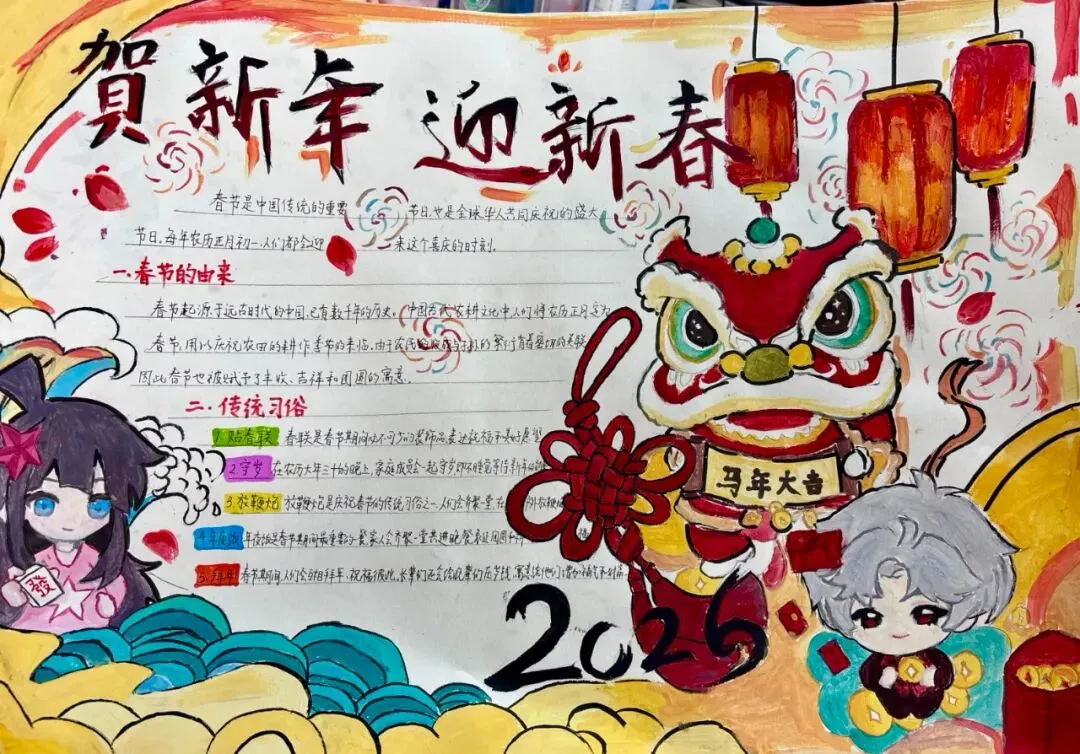 賀新年 迎新春
春节是中国传统的重要 节日,也是全球华人共同庆祝的盛大
节日,每年农历正月初一,人们都会迎 来这个喜庆的时刻.
一.春节的由来
春节起源于远古时代的中国,已有数千年的历史,中国古代农耕文化中人们将农历正月定为
春节,用以庆祝农田的耕作季节的来临.由于农民的收成与 的 有着密切的关联
因此春节也被赋予了丰收、吉祥和团圆的寓意.
二.传统习俗
1.贴春联 春联是春节期间必不可少的装饰品,表达祝福和美好愿望
2.守岁 在农历大年三十的晚上,家庭成员会一起守岁,即不睡觉等待新年的
3.放鞭炮 放鞭炮是庆祝春节的传统习俗之一,人们会齐聚一堂,在 外放鞭炮
4.年夜饭 年夜饭是春节期间最重要的一餐,家人会齐聚一堂共进晚餐,象征团圆和
5.拜年 春节期间,人们会互相拜年,祝福彼此,长辈们还会给晚辈们压岁钱,寓意给他们增加福气和财富.
马年大吉
發
2026